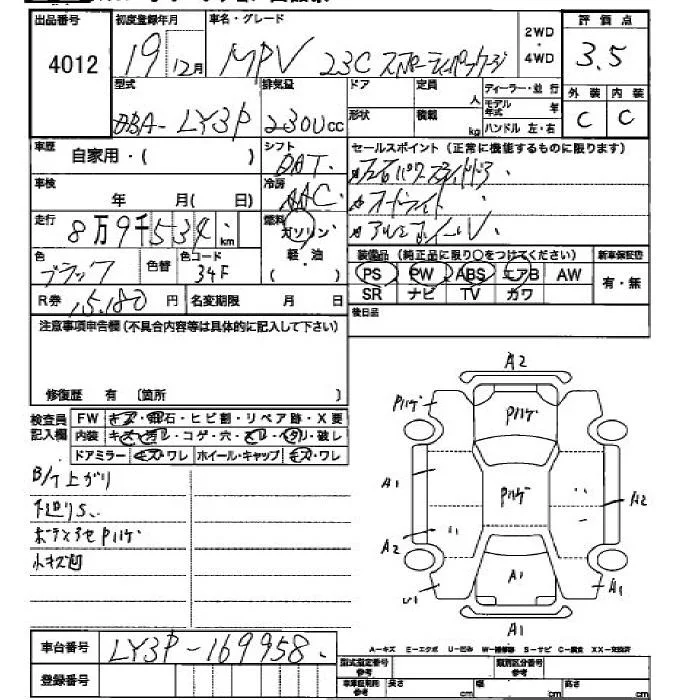 出品番号
4012
初度登録年月
19 12月
車名・グレード
MPV 23C スポーティパッケージ
2WD
・
4WD
評価点
3.5
型式
DBA- LY3P
排気量
2300cc
ドア
定員
人
ディーラー・並行
モデル年式 年
形状
積載
kg
ハンドル 左・右
外装
内装
C
C
車歴
自家用・( )
シフト
DAT
セールスポイント(正常に機能するものに限ります)
車検
年 月( 日)
冷房
AAC
オートライト
アルミホイール
走行
8万9千534 km
燃料
ガソリン・
軽・油
( )
色
ブラック
色替
色コード
34F
装備品(純正品に限り○をつけてください)
新車保証書
PS PW ABS エアB AW
SR ナビ TV カワ
有・無
R券 15,180円
名変期限 月 日
後日品
注意事項申告欄(不具合内容等は具体的に記入して下さい)
修復歴 有 〔箇所 〕
検査員
記入欄
FW キズ・飛石・ヒビ割・リペア跡・X要
内装 キズ・汚レ・コゲ・穴・スレ・ヘタリ・破レ
ドアミラー キズ・ワレ ホイール・キャップ キズ・ワレ
B/T上ガリ
下廻りS、
ボデー色アセ Pハゲ
小キズ凹
A2
Pハゲ
Pハゲ
A1
Pハゲ
A2
A2
A1
U1
A1
A1
A-キズ E-エクボ U-凹み W-補修跡 S-サビ C-腐食 XX-交換済
車台番号
LY3P-169958
登録番号
型式指定番号
参考
類別区分番号
参考
車庫証明用
参考
長さ cm
幅 cm
高さ cm